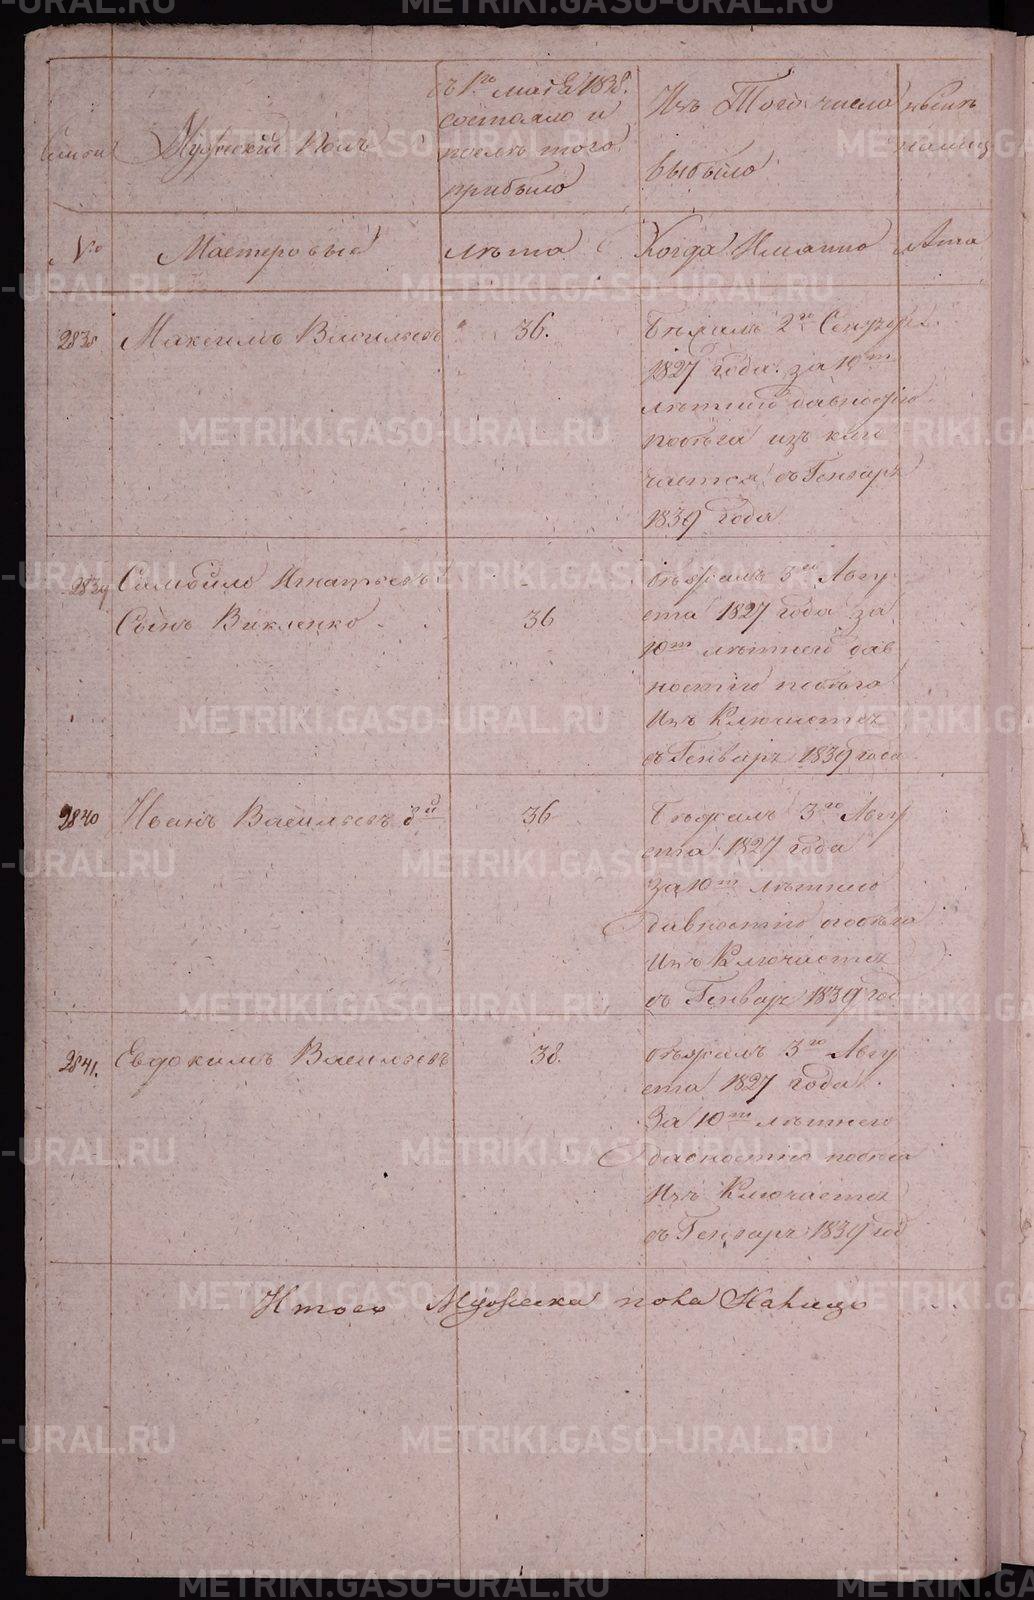 METRIKI.GASO-URAL.RU
Семьи
Мужеский Полъ
съ 1го мая 1838.
состояло и
послѣ того
прибыло
Изъ Того числа
выбыло
нынѣ
налицо
№
Мастеровые
лѣта
Когда Именно
Лѣта
2838
Максимъ Васильевъ
36.
Бѣжалъ 2го Сентября
1827 года. за 10ти
лѣтнею давностію
побѣга изъ клю
чается съ Генваря
1839 года
2839
Самойло Игнатьевъ
Сынъ
36
бѣжалъ 3го Авгу
ста 1827 года за
10ти лѣтнею дав
ностію побѣга
Изъ Ключается
съ Генваря 1839 года
2840
Иванъ Васильевъ 3й
36
Бѣжалъ 3го Авгу
ста 1827 года
За 10ти лѣтнею
давностію побѣга
Изъ Ключается
съ Генваря 1839 год
2841.
Евдокимъ Васильевъ
38.
бѣжалъ 3го Авгу
ста 1827 года.
За 10ти лѣтнею
давностію побѣга
Изъ Ключается
съ Генваря 1839 год
Итого Мужеска пола Налицо